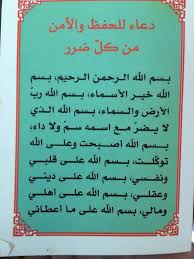 دعاء للحفظ والأمن
من كلّ ضرر
بسم الله الرحمن الرحيم، بسم
الله خير الأسماء، بسم الله ربّ
الأرض والسماء، بسم الله الذي
لا يضرّ مع اسمه سمّ ولا داء،
بسم الله اصبحت وعلى الله
توكّلت، بسم الله على قلبي
ونفسي، بسم الله على ديني
وعقلي، بسم الله على اهلي
ومالي، بسم الله على ما اعطاني